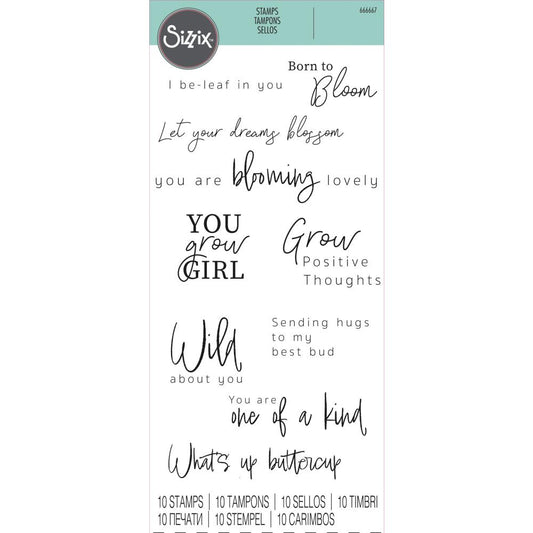 Sizzix
STAMPS
TAMPONS
SELLOS
666667
Born to
Bloom
I be-leaf in you
Let your dreams blossom
you are blooming lovely
YOU
grow
GIRL
Grow
Positive
Thoughts
Wild
about you
Sending hugs
to my
best bud
You are
one of a kind
What's up buttercup
10 STAMPS | 10 TAMPONS | 10 SELLOS | 10 TIMBRI
10 ПЕЧАТИ | 10 STEMPEL | 10 CARIMBOS